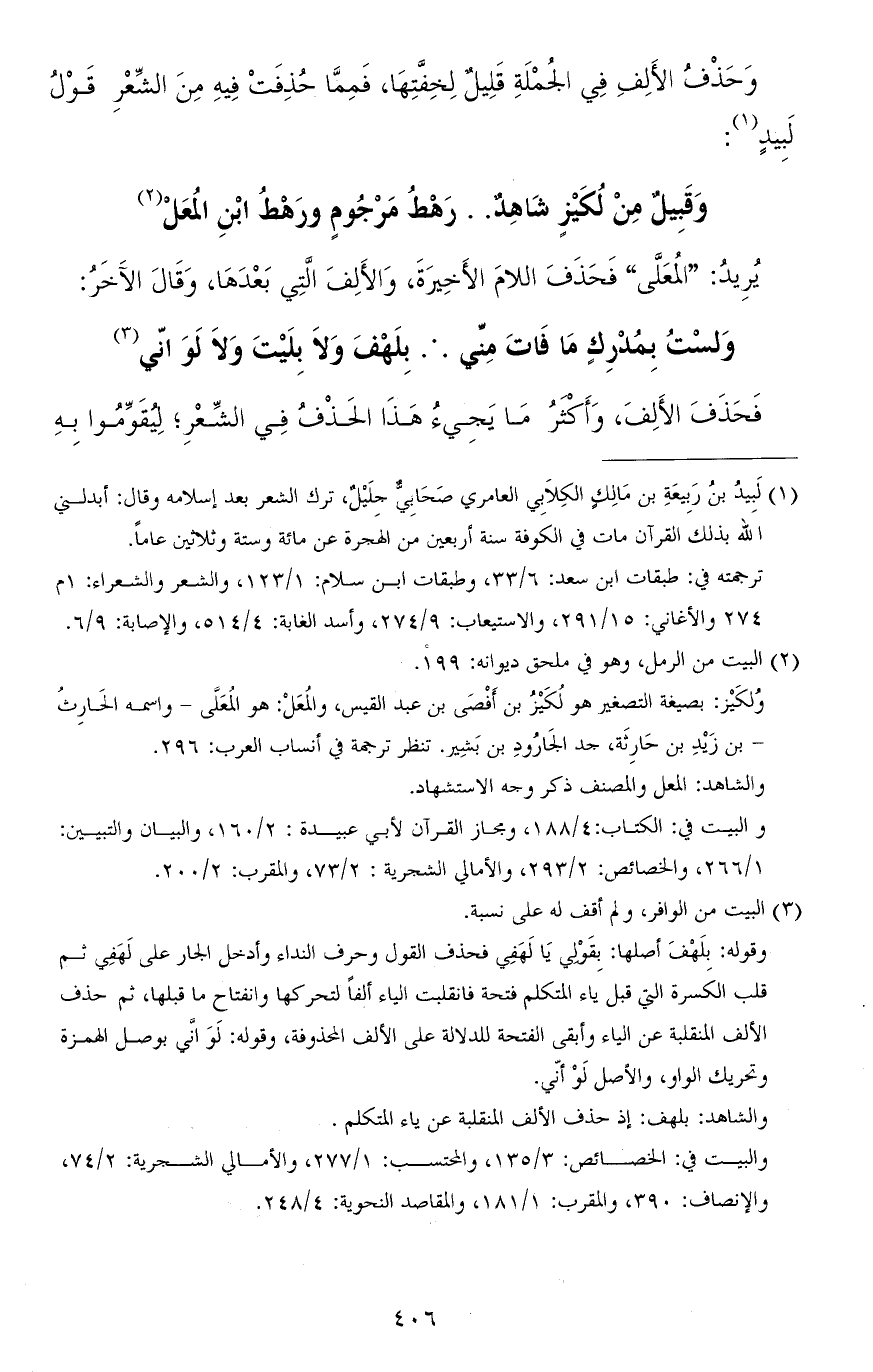 وَحَذْفُ الأَلِفِ فِي الجُمْلَةِ قَلِيلٌ لِخِفَّتِهَا، فَمِمَّا حُذِفَتْ فِيهِ مِنَ الشِّعْرِ قَوْلُ
لَبِيدٍ(١):
وَقَبِيلٌ مِنْ لُكَيْزٍ شَاهِدٌ. . رَهْطُ مَرْجُومٍ ورَهْطُ ابْنِ المُعَلْ(٢)
يُرِيدُ: "المُعَلَّى" فَحَذَفَ اللامَ الأَخِيرَةَ، وَالأَلِفَ الَّتِي بَعْدَهَا، وَقَالَ الآخَرُ:
وَلسْتُ بِمُدْرِكٍ مَا فَاتَ مِنِّي .·. بِلَهْفَ وَلاَ بِلَيْتَ وَلاَ لَوَ انّي(٣)
فَحَذَفَ الأَلِفَ، وَأَكْثَرُ مَا يَجِيءُ هَذَا الحَذْفُ فِي الشِّعْرِ؛ لِيُقَوِّمُوا بِهِ
(١) لَبِيدُ بنُ رَبِيعَةِ بن مَالِكٍ الكِلاَبي العامري صَحَابيٌّ جلِيْلٌ، ترك الشعر بعد إسلامه وقال: أبدلني
الله بذلك القرآن مات في الكوفة سنة أربعين من الهجرة عن مائة وستة وثلاثين عاماً.
ترجمته في: طبقات ابن سعد: ٣٣/٦، وطبقات ابن سلام: ١٢٣/١، والشعر والشعراء: ١م
٢٧٤ والأغاني: ٢٩١/١٥، والاستيعاب: ٢٧٤/٩، وأسد الغابة: ٥١٤/٤، والإصابة: ٦/٩.
(٢) البيت من الرمل، وهو في ملحق ديوانه: ١٩٩.
وُلكَيْز: بصيغة التصغير هو لُكَيْزُ بن أَفْصَى بن عبد القيس، والمُعَلْ: هو المُعَلَّى – واسمه الحَارِثُ
– بن زَيْدِ بن حَارِثَة، جد الجَارُودِ بن بَشِير. تنظر ترجمة في أنساب العرب: ٢٩٦.
والشاهد: المعل والمصنف ذكر وجه الاستشهاد.
و البيت في: الكتاب:١٨٨/٤، ومجاز القرآن لأبي عبيدة : ١٦٠/٢، والبيان والتبيين:
٢٦٦/١، والخصائص: ٢٩٣/٢، والأمالي الشجرية : ٧٣/٢، والمقرب: ٢٠٠/٢.
(٣) البيت من الوافر، ولم أقف له على نسبة.
وقوله: بِلَهْفَ أصلها: بِقَوْلِي يَا لَهَفِي فحذف القول وحرف النداء وأدخل الجار على لَهَفِي ثم
قلب الكسرة التي قبل ياء المتكلم فتحة فانقلبت الياء ألفاً لتحركها وانفتاح ما قبلها، ثم حذف
الألف المنقلبة عن الياء وأبقى الفتحة للدلالة على الألف المحذوفة، وقوله: لَوَ انَّي بوصل الهمزة
وتحريك الواو، والأصل لَوْ أنّي.
والشاهد: بلهف: إذ حذف الألف المنقلبة عن ياء المتكلم .
والبيت في: الخصائص: ١٣٥/٣، والمحتسب: ٢٧٧/١، والأمالي الشجرية: ٧٤/٢،
والإنصاف: ٣٩٠، والمقرب: ١٨١/١، والمقاصد النحوية: ٢٤٨/٤.
٤٠٦